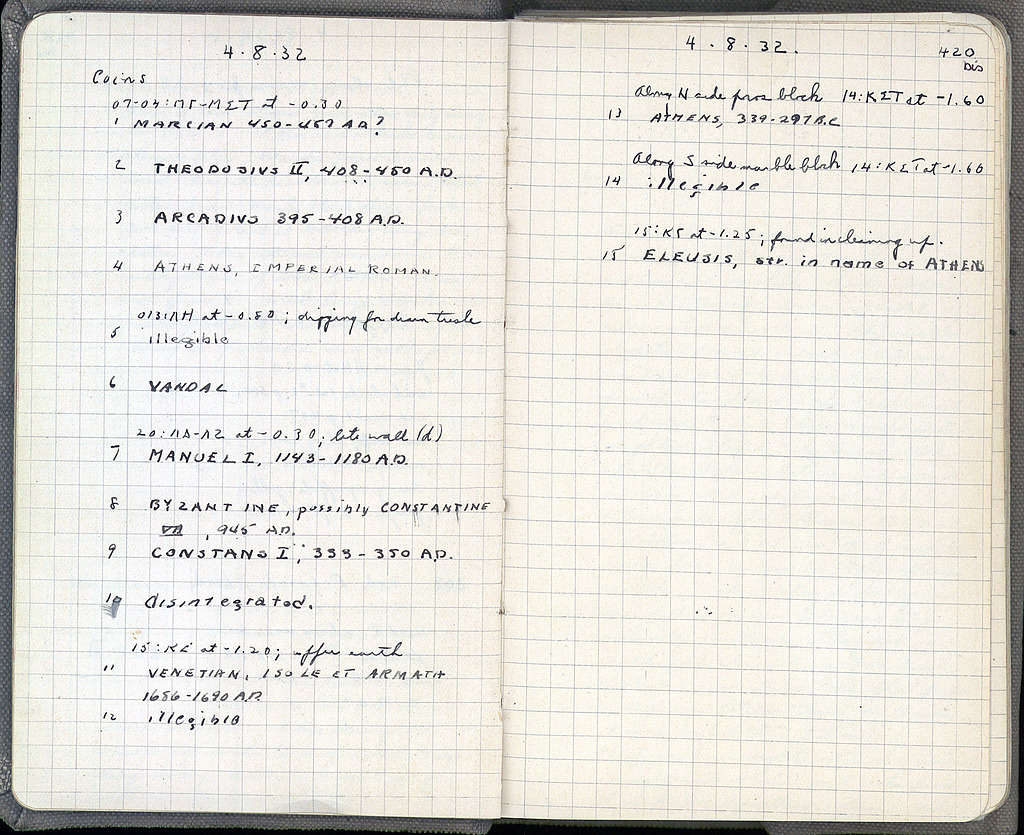 4.8.32
Coins
at -0.30
1 MARCIAN 450-457 A.D.?
2 THEODOSIUS II, 408-450 A.D.
3 ARCADIUS 395-408 A.D.
4 ATHENS, IMPERIAL ROMAN.
at -0.80; digging for drain
5 illegible
6 VANDAL
at -0.30; late wall (d)
7 MANUEL I, 1143-1180 A.D.
8 BYZANTINE, possibly CONSTANTINE
VII, 945 A.D.
9 CONSTANS I, 333-350 A.D.
10 disintegrated.
at -1.20; upper earth
11 VENETIAN, ISOLE ET ARMATA
1686-1690 A.D.
12 illegible
4.8.32.
420
bis
Along N side poros block 14:ΚΣΤ at -1.60
13 ATHENS, 339-297 B.C.
Along S side marble block 14:ΚΣΤ at -1.60
14 illegible
at -1.25; found in cleaning up.
15 ELEUSIS, str. in name of ATHENS